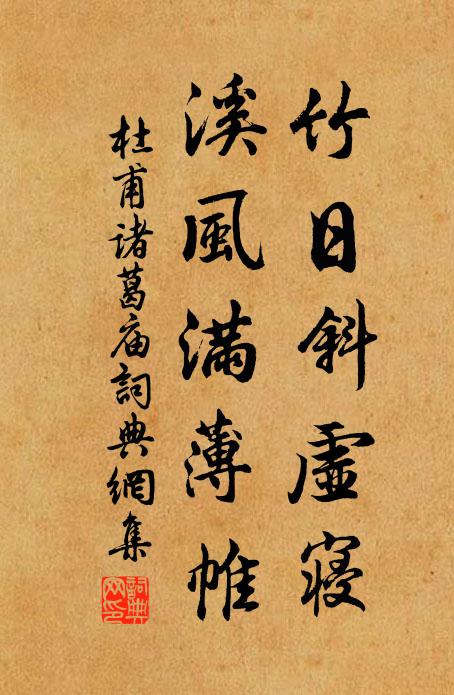 竹日斜虛寢
溪風滿薄帷
杜甫諸葛庙詞典網集
詞典網印